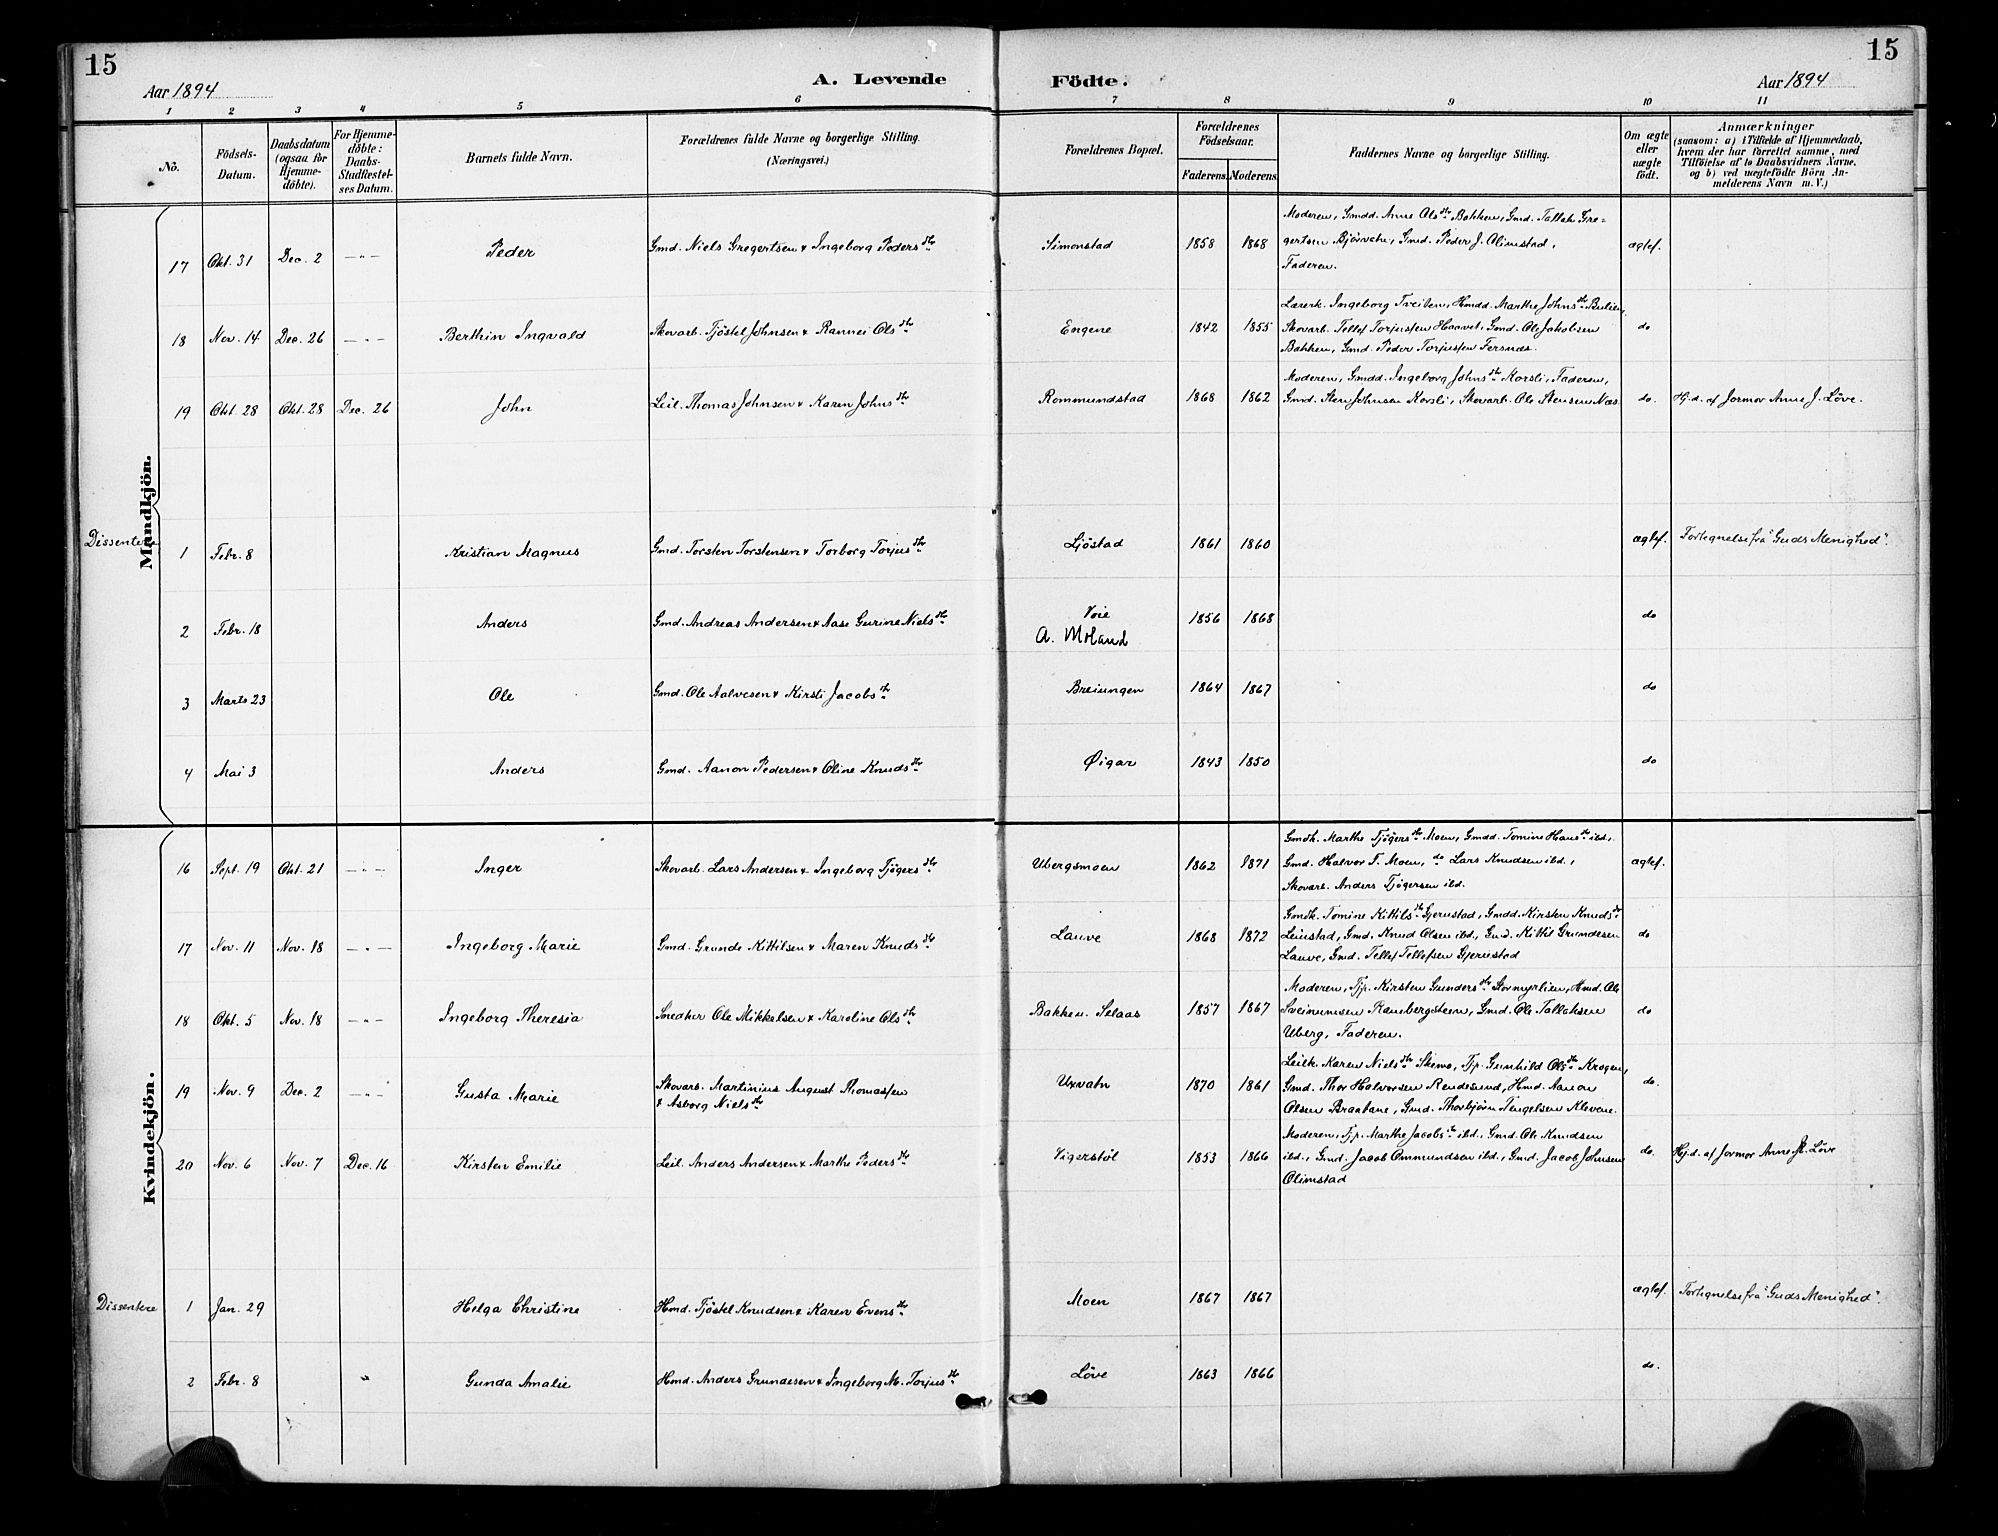 15
Aar 1894
A. Levende
Födte.
Aar 1894
15
1 2 3 4 5 6 7 8 9 10 11
No.
Födsels-
Datum.
Daabsdatum
(ogsaa for
Hjemme-
döbte).
For Hjemme-
döbte:
Daabs-
Stadfæstel-
ses Datum.
Barnets fulde Navn.
Forældrenes fulde Navne og borgerlige Stilling.
(Næringsvei.)
Forældrenes Bopæl.
Forældrenes
Födselsaar.
Faderens. Moderens.
Faddernes Navne og borgerlige Stilling.
Om ægte
eller
uægte
födt.
Anmærkninger
(saasom: a) i Tilfælde af Hjemmedaab,
hvem der har forrettet samme, med
Tilföielse af to Daabsvidners Navne,
og b) ved uægtefödte Börn An-
melderens Navn m.V.)
Mandkjön.
17 Okt. 31 Dec. 2 -"- Peder Gmd. Niels Gregertsen & Ingeborg Pedersdtr Simonstad 1858 1868
Moderen, Gmdd. Anne Olsdtr Bakken, Gmd. Tallak Gre-
gertsen Björvatn, Gmd. Peder J. Olimstad,
Faderen.
ægtef.
18 Nov. 14 Dec. 26 -"- Berthin Ingvald Skovarb. Tjöstel Johnsen & Rannei Olsdtr Engene 1842 1855
Lærerk. Ingeborg Tveiten, Hmdd. Marthe Johnsdtr Bulien,
Skovarb. Tellef Torjussen Haavet, Gmd. Ole Jakobsen
Bakken, Gmd. Peder Torjussen Fersnæs.
do
19 Okt. 28 Okt. 28 Dec. 26 John Leil. Thomas Johnsen & Karen Johnsdtr Rommundstad 1868 1862
Moderen, Gmdd. Ingeborg Johnsdtr Korsli, Faderen,
Gmd. Sten Johnsen Korsli, Skovarb. Ole Stensen Næs.
do. Hj.d. af Jormor Anne J. Löve.
Dissentere
1 Febr. 8 Kristian Magnus Gmd. Torsten Torstensen & Torborg Torjusdtr Ljöstad 1861 1860 ægtef. Fortegnelse fra "Guds Menighed".
2 Febr. 18 Anders Gmd. Andreas Andersen & Aase Gurine Nielsdtr Voie
A. Moland
1856 1868 do
3 Marts 23 Ole Gmd. Ole Aalvesen & Kirsti Jacobsdtr Breiungen 1864 1867 do
4 Mai 3 Anders Gmd. Aanon Pedersen & Oline Knudsdtr Øigar 1843 1850 do
Kvindekjön.
16 Sept. 19 Okt. 21 -"- Inger Skovarb. Lars Andersen & Ingeborg Tjögersdtr Ubergsmoen 1862 1871
Gmdk. Marthe Tjögersdtr Moen, Gmdd. Tomine Hansdtr ibd.,
Gmd. Halvor T. Moen, do Lars Knudsen ibd.,
Skovarb. Anders Tjögersen ibd.
ægtef.
17 Nov. 11 Nov. 18 -"- Ingeborg Marie Gmd. Grunde Kittilsen & Maren Knudsdtr Lauve 1868 1872
Gmdk. Tomine Kittilsdtr Gjerustad, Gmdd. Kirsten Knudsdtr
Leiustad, Gmd. Knud Olsen ibd., Gmd. Kittil Grundesen
Lauve, Gmd. Tellef Tellefsen Gjerustad
do
18 Okt. 5 Nov. 18 -"- Ingeborg Theresia Snedker Ole Mikkelsen & Karoline Olsdtr Bakken. Selaas 1857 1867
Moderen, Tjp. Kirsten Gundersdtr Stormyrlien, Hmd. Ole
Sveinumsen Rambergsteen, Gmd. Ole Tallaksen
Uberg, Faderen.
do
19 Nov. 9 Dec. 2 -"- Gusta Marie Skovarb. Martinius August Thomassen
& Asborg Nielsdtr
Uxvatn 1870 1861
Leilk. Karen Nielsdtr Skemo, Tjp. Gunhild Olsdtr Krogen,
Gmd. Thor Halvorsen Rendesund, Hmd. Aanon
Olsen Braatane, Gmd. Thorbjörn Tengelsen Klevene.
do.
20 Nov. 6 Nov. 7 Dec. 16 Kirsten Emilie Leil. Anders Andersen & Marthe Pedersdtr Vigerstöl 1853 1866
Moderen, Tjp. Marthe Jacobsdtr ibd., Gmd. Ole Knudsen
ibd., Gmd. Jacob Ommundsen ibd., Gmd. Jacob Johnsen
Olimstad
do. Hj.d. af Jormor Anne J. Löve
Dissentere
1 Jan. 29 Helga Christine Hmd. Tjöstel Knudsen & Karen Evensdtr Moen 1867 1867 ægtef. Fortegnelse fra "Guds Menighed".
2 Febr. 8 " Gunda Amalie Hmd. Anders Grundesen & Ingeborg M. Torjusdtr Löve 1863 1866 do.